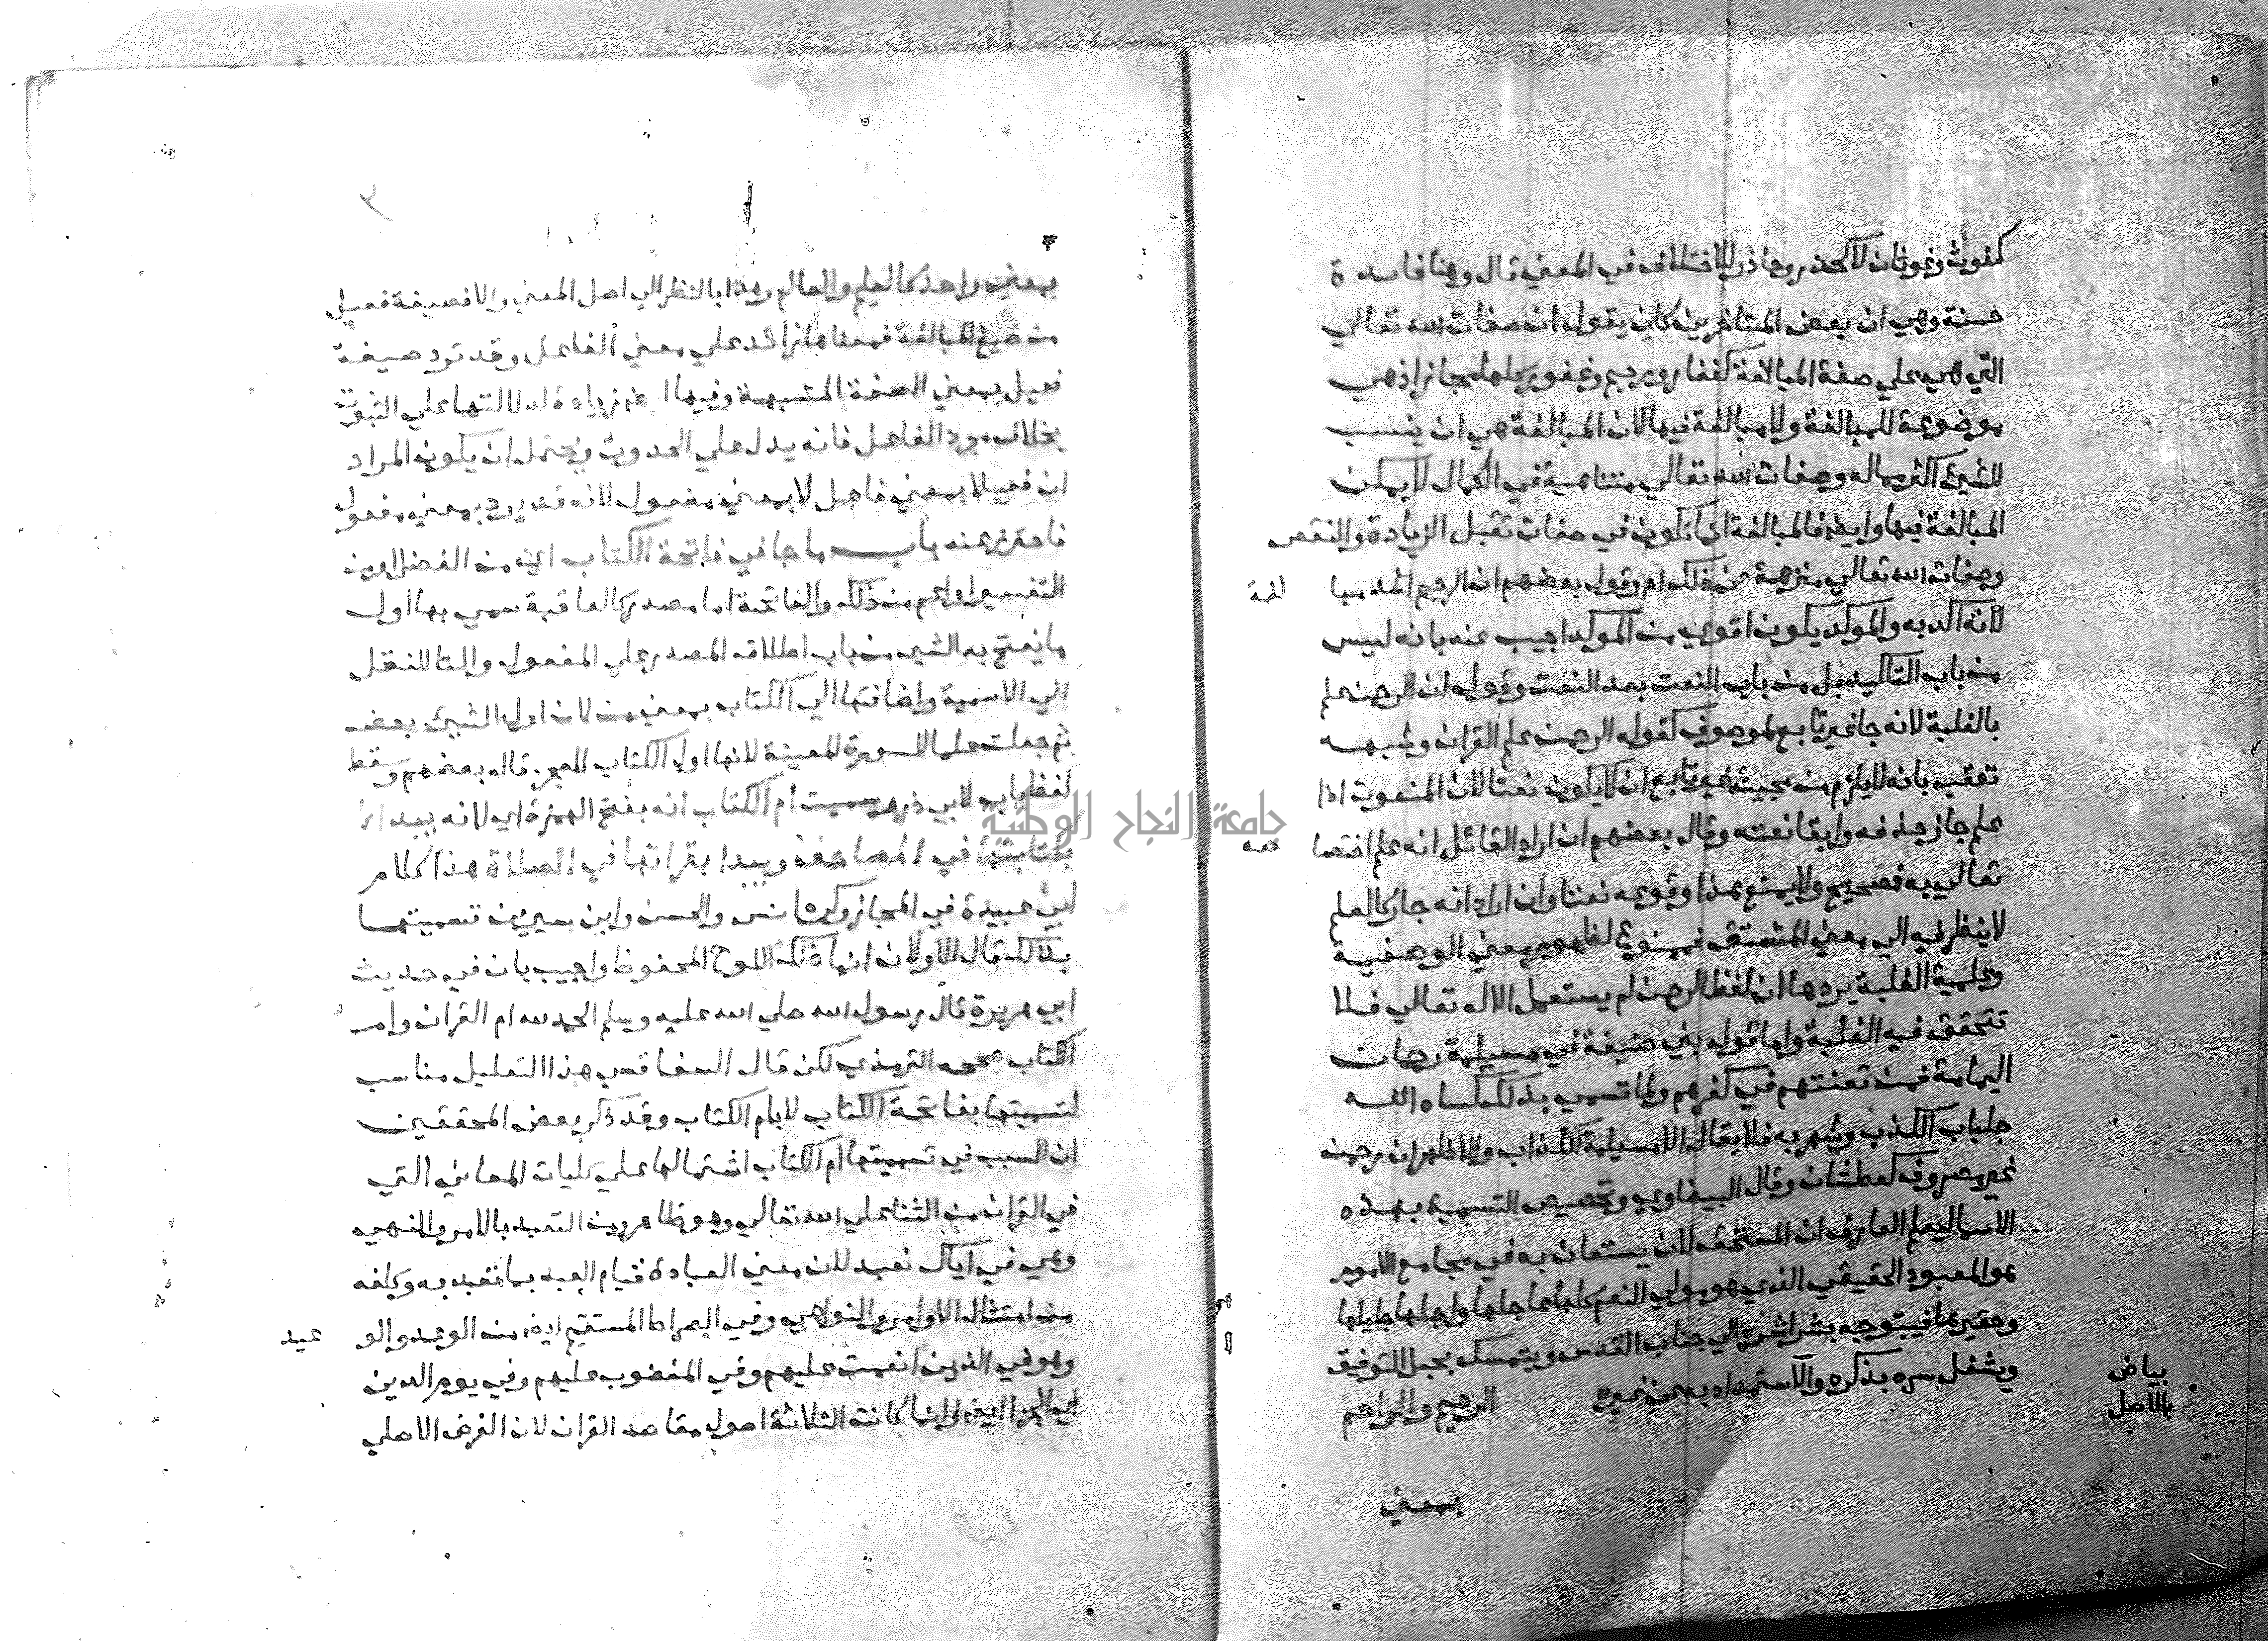 كغوث وغوثان لا كحذر وحاذر للاختلاف في المعني قال وهنا فايدة
حسنة وهي ان بعض المتاخرين كان يقول ان صفات الله تعالي
التي هي علي صفة المبالغة كغفار ورحيم وغفور كلها مجاز اذ هي
موضوعة للمبالغة ولا مبالغة فيها لان المبالغة هي ان ينسب
للشيئ اكثر مما له وصفات الله تعالي متناهية في الكمال لا يمكن
المبالغة فيها وايضا فالمبالغة انما تكون في صفات تقبل الزيادة والنقص
وصفات الله تعالي منزهة عن ذلك اه وقول بعضهم ان الرحيم اشد مبا لغة
لأنه اكد به والموكد يكون اقوي من الموكد اجيب عنه بانه ليس
من باب التاكيد بل من باب النعت بعد النعت وقول ان الرحمن علم
بالغلبة لانه جا غير تابع لموصوف كقوله الرحمن علم القران وشبهه
تعقب بانه لا يلزم من مجيئه غير تابع ان لا يكون نعتا لان المنعوت اذا
علم جاز حذفه وابقا نعته وقال بعضهم ان اراد القائل انه علم اختصا صه
تعالي به فصحيح ولا يمنع هذا وقوعه نعتا وان اراد انه جار كالعلم
لا ينظر فيه الي معني المشتق فممنوع لظهور معني الوصفية
وعلمية الغلبة يردها ان لفظ الرحمن لم يستعمل الا له تعالي فلا
تتحقق فيه الغلبة واما قول بني حنيفة في مسيلمة رحمان
اليمامة فمن تعنتهم في كفرهم ولما تسمي بذلك كساه الله
جلباب الكذب وشهر به فلا يقال الا مسيلمة الكذاب والاظهر ان رحمن
غير مصروف كعطشان وقال البيضاوي وتخصيص التسمية بهذه
الاسما ليعلم العارف ان المستحق لان يستعان به في مجامع الامور
هو المعبود الحقيقي الذي هو مولي النعم كلها عاجلها واجلها جليلها
وحقيرها فيتوجه بشراشره الي جناب القدس ويتمسك بحبل التوفيق
ويشغل سره بذكره والاستمداد به عن غيره الرحيم والراحم
بياض
بالاصل
بمعني
٣
بمعني واحد كالعليم والعالم وهذا بالنظر الي اصل المعني والا فصيغة فعيل
من صيغ المبالغة فمعناها زائد علي معني الفاعل وقد ترد صيغة
فعيل بمعني الصفة المشبهة وفيها ايضا زيادة لدلالتها علي الثبوت
بخلاف مجرد الفاعل فانه يدل علي الحدوث ويحتمل ان يكون المراد
ان فعيلا بمعني فاعل لا بمعني مفعول لانه قد يرد بمعني مفعول
فاحترز عنه باب ما جا في فاتحة الكتاب اي من الفضل او من
التفسير او اعم من ذلك والفاتحة اما مصدر كالعاقبة سمي بها اول
ما يفتح به الشي من باب اطلاق المصدر علي المفعول والتا للنقل
الي الاسمية واضافتها الي الكتاب بمعني من لان اول الشيئ بعضه
ثم جعلت علما للسورة المعينة لانها اول الكتاب المعجز قاله بعضهم وسقط
لفظ باب لابي ذر وسميت ام الكتاب انه بفتح الهمزة اي لانه يبدا
بكتابتها في المصاحف ويبدا بقراتها في الصلاة هذا كلام
ابي عبيدة في المجاز وكره انس والحسن وابن سيرين تسميتها
بذلك قال الاولان انما ذلك اللوح المحفوظ واجيب بان في حديث
ابي هريرة قال رسول الله صلي الله عليه وسلم الحمد لله ام القران وام
الكتاب صححه الترمذي لكن قال السفاقسي هذا التعليل مناسب
لتسميتها بفاتحة الكتاب لا بام الكتاب وقد ذكر بعض المحققين
ان السبب في تسميتها ام الكتاب اشتمالها علي كليات المعاني التي
في القران من الثنا علي الله تعالي وهو ظاهر ومن التعبد بالامر والنهي
وهي في اياك نعبد لان معني العبادة قيام العبد بما تعبد به وكلفه
من امتثال الاوامر والنواهي وفي الصراط المستقيم ايضا من الوعد والو عيد
وهو في الذين انعمت عليهم وفي المغضوب عليهم وفي يوم الدين
اي الجزا ايضا وانما كانت الثلاثة اصول مقاصد القران لان الغرض الاصلي
جامعة النجاح الوطنية